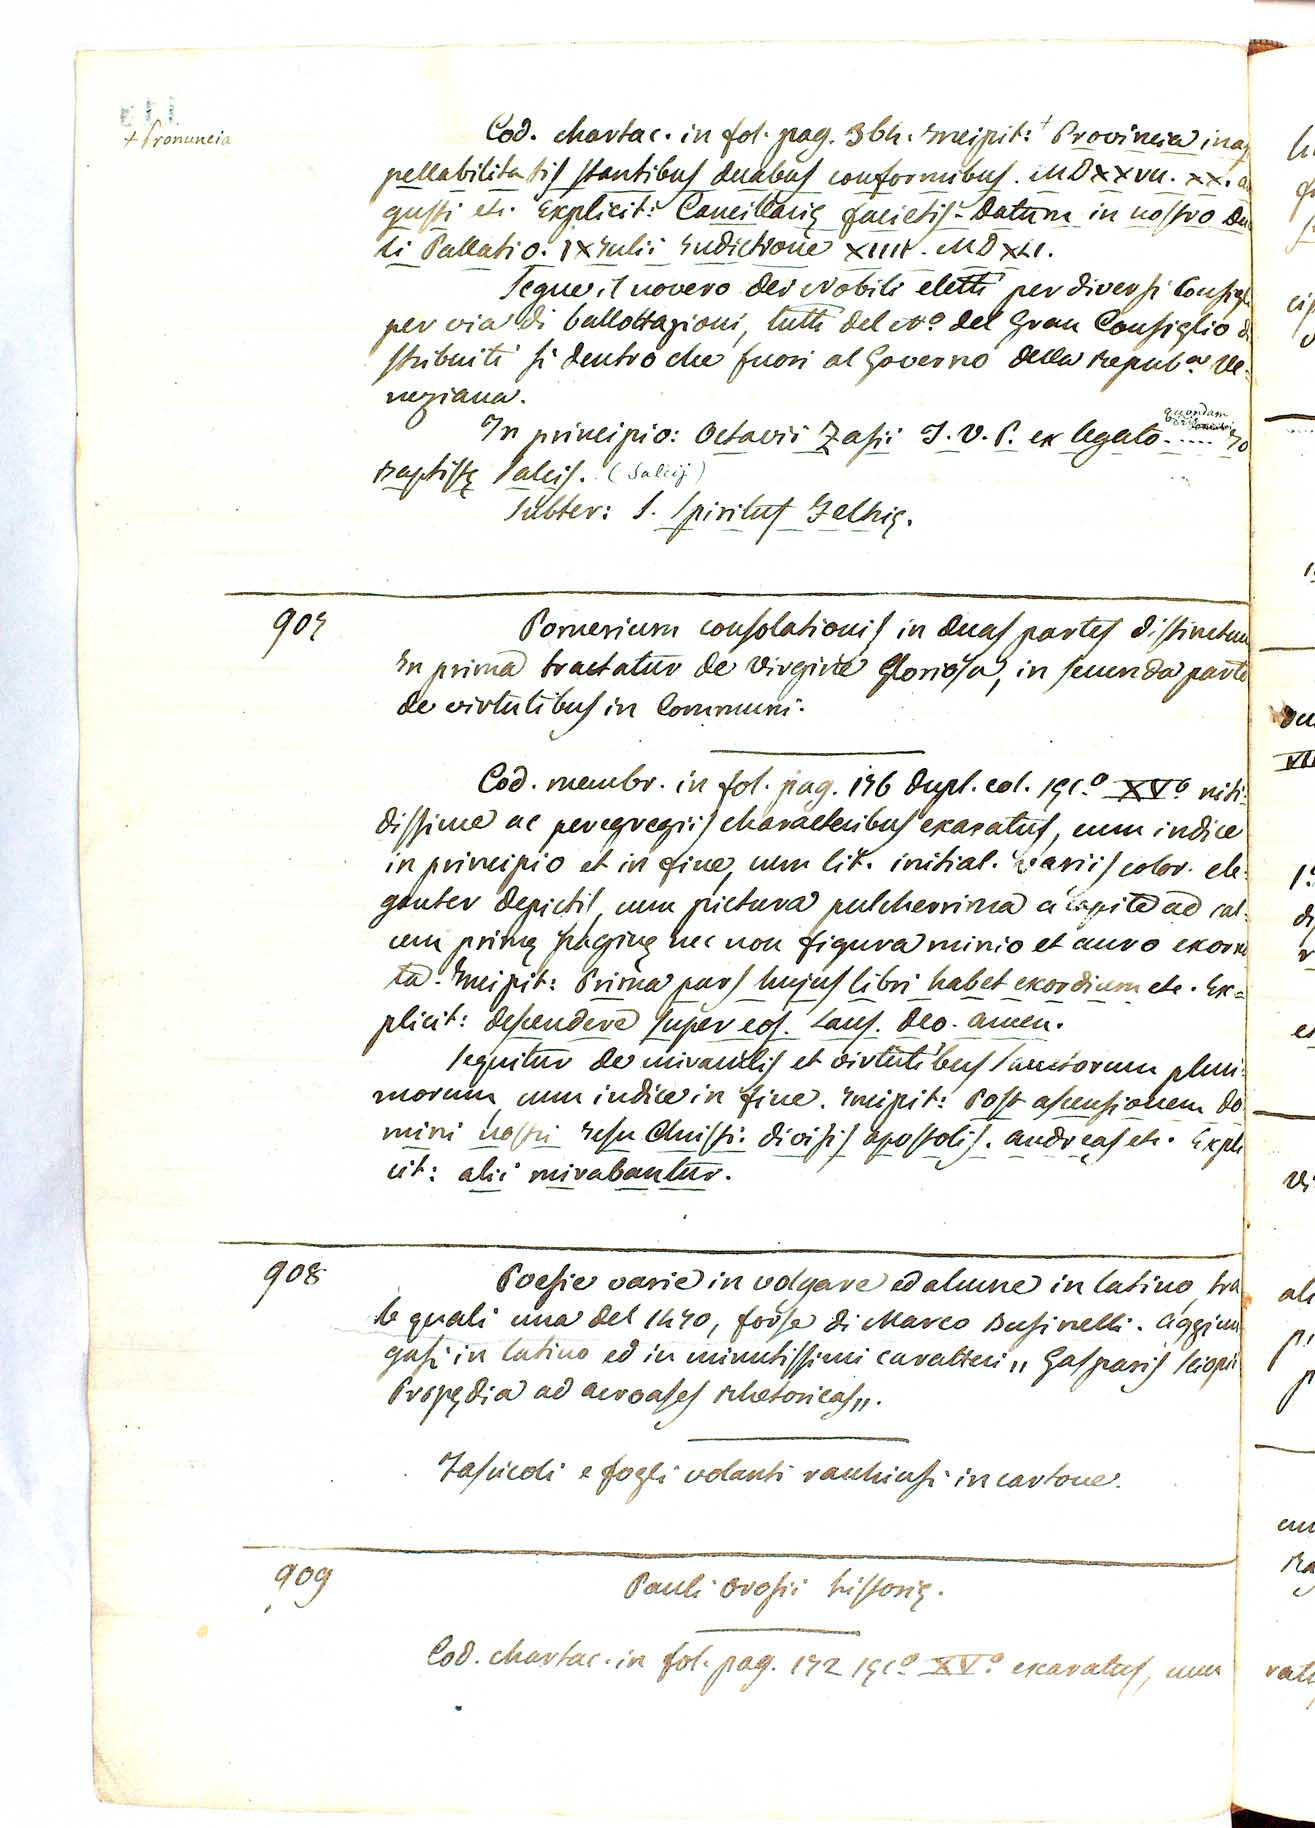 + Pronuncia
Cod. chartac. in fol. pag. 364. Incipit: + Provincia inap
pellabilitatis stantibus duabus conformibus. MDXXVII. XX. au
gusti etc. Explicit: Cancillarię facietis - Datum in nostro Du
li Pallatio. IX Iulii Indictione XIIII. MDXLI.
Segue il novero dei Nobili eletti per diversi Consigli
per via di ballottazioni, tutti del No. del Gran Consiglio di
stribuiti sì dentro che fuori al Governo della Repub.ca Ve=
neziana.
In principio: Octavii Zasii J. V. P. ex legato .... quondam Io
Baptistę Salcis. (Salcij)
Subter: S. Spiritus Zelhię.
907
Pomerium consolationis in duas partes distinctum
In prima tractatur de Virgine Gloriosa, in secunda parte
de virtutibus in Communi.
Cod. membr. in fol. pag. 176 dupl. col. sęc.o XV.o niti=
dissime ac peregregiis characteribus exaratus, cum indice
in principio et in fine, cum lit. initial. variis color. ele=
ganter depictis, cum pictura pulcherrima a capite ad cal=
cem primę paginę nec non figura minio et auro exorna
ta. Incipit: Prima pars hujus libri habet exordium etc. Ex=
plicit: descendere super eos. Laus. deo. amen.
Sequitur de miraculis et virtutibus Sanctorum pluri=
morum, cum indice in fine. Incipit: Post ascensionem Do
mini nostri Iesu Christi: divisis apostolis. andreas etc. Expli
cit: alii mirabantur.
908
Poesie varie in volgare ed alcune in latino, tra
le quali una del 1470, forse di Marco Businelli. Aggiun
gasi in latino ed in minutissimi caratteri „ Gasparis Sciopii
Propędia ad acroases Rhetoricas„.
Fascicoli e fogli volanti racchiusi in cartone.
909
Pauli Orosii historię.
Cod. chartac. in fol. pag. 172 sęc.o XV.o exaratus, cum